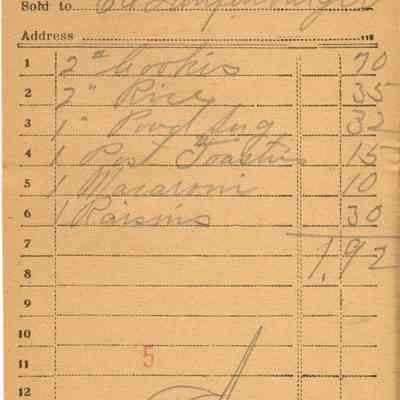 Sold to Ed
Address
1 2 # Cookis 70
2 2 " Rice 35
3 1 " Powd Sug 32
4 1 Post Toasties 15
5 1 Macaroni 10
6 1 Raisins 30
7 1.92
8
9
10
11 5
12